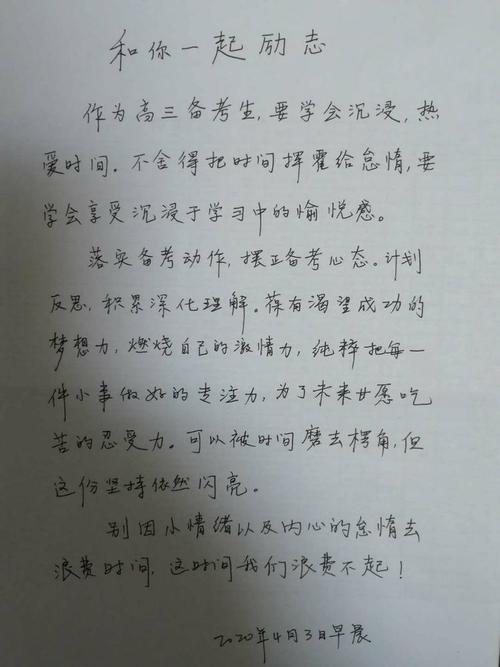 和你一起励志
作为高三备考生,要学会沉浸,热
爱时间。不舍得把时间挥霍给怠惰,要
学会享受沉浸于学习中的愉悦感。
落实备考动作,摆正备考心态。计划
反思,积累深化理解。葆有渴望成功的
梦想力,燃烧自己的激情力,纯粹把每一
件小事做好的专注力,为了未来甘愿吃
苦的忍受力。可以被时间磨去楞角,但
这份坚持依然闪亮。
别因小情绪以及内心的怠惰去
浪费时间,这时间我们浪费不起!
2020年4月3日早晨